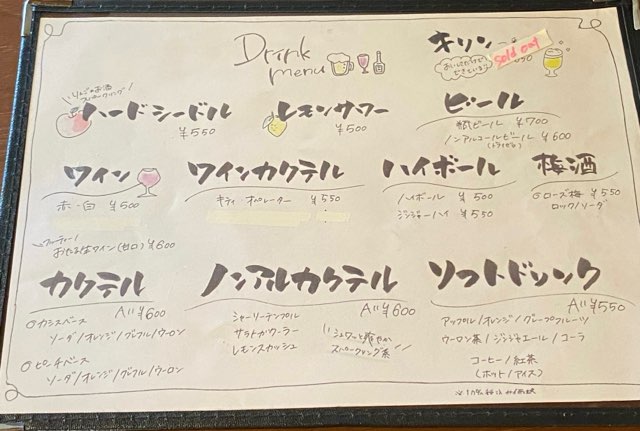 Drink
menu
キリン
sold out
りんごのお酒
スパークリング
ハードシードル
¥550
レモンサワー
¥500
ビール
瓶ビール ¥700
ノンアルコールビール ¥600
ワイン
赤・白 ¥500
フルーティー!
ワイン(甘口) ¥600
ワインカクテル
キティ・オペレーター ¥550
ハイボール
ハイボール ¥500
ジンジャーハイ ¥550
梅酒
ローズ梅 ¥550
ロック/ソーダ
カクテル
All ¥600
カシスベース
ソーダ/オレンジ/グレフル/ウーロン
ピーチベース
ソーダ/オレンジ/グレフル/ウーロン
ノンアルカクテル
All ¥600
シャーリーテンプル
サラトガクーラー
レモンスカッシュ
シュワッと爽やか
スパークリング系
ソフトドリンク
All ¥550
アップル/オレンジ/グレープフルーツ
ウーロン茶/ジンジャエール/コーラ
コーヒー/紅茶
(ホット/アイス)